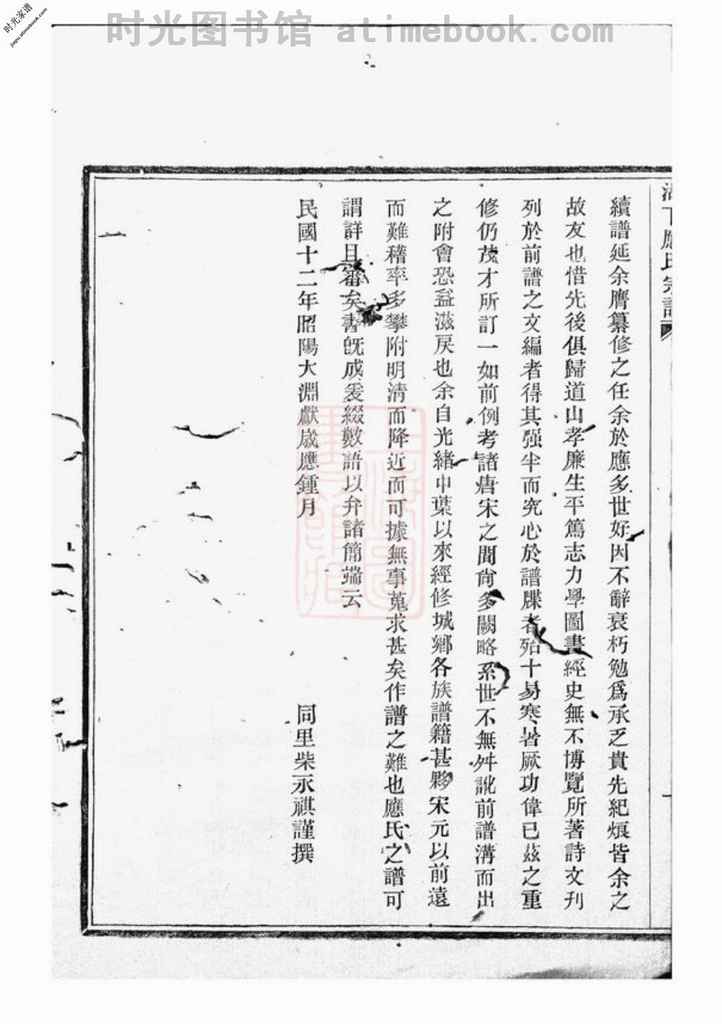 时光图书馆 atimebook.com
时光家谱
jiapu.atimebook.com
下應氏宗譜
續譜延余膺纂修之任余於應多世好因不辭衰朽勉爲承乏貴先紀煩皆余之
故友也惜先後俱歸道山孝廉生平篤志力學圖書經史無不博覽所著詩文刊
列於前譜之文編者得其强半而究心於譜牒者殆十易寒暑厥功偉已茲之重
修仍茂才所訂一如前例考諸唐宋之間尙多闕略系世不無舛訛前譜溝而出
之附會恐益滋戾也余自光緒中葉以來經修城鄉各族譜籍甚夥宋元以前遠
而難稽率多攀附明清而降近而可據無事蒐求甚矣作譜之難也應氏之譜可
謂詳且審矣書旣成爰綴數語以弁諸簡端云
民國十二年昭陽大淵獻歲應鍾月 同里柴永祺謹撰